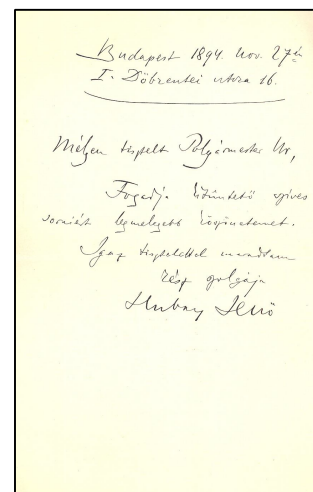 Budapest 1894. Nov. 27én
I. Döbrentei utcza 16.
Mélyen tisztelt Polgármester Ur,
Fogadja kitüntető szives
soraiért legmelegebb köszönetemet.
Igaz tisztelettel maradtam
kész szolgája
Hubay Jenő